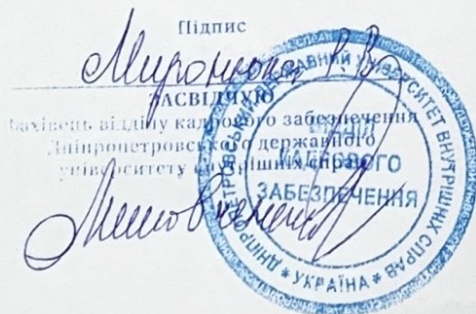 Підпис
Миронюка Р. В.
ЗАСВІДЧУЮ
Фахівець відділу кадрового забезпечення
Дніпропетровського державного
університету внутрішніх справ
ДНІПРОПЕТРОВСЬКИЙ ДЕРЖАВНИЙ УНІВЕРСИТЕТ ВНУТРІШНІХ СПРАВ
* УКРАЇНА *
ВІДДІЛ
КАДРОВОГО
ЗАБЕЗПЕЧЕННЯ